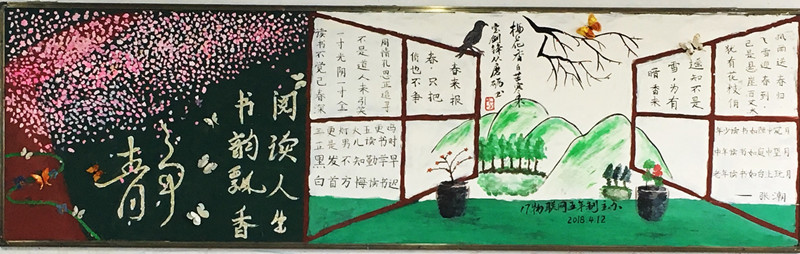 读书不觉已春深
一寸光阴一寸金
不是道人来引笑
周情孔思正追寻
阅读人生
书韵飘香
三更灯火五更鸡
正是男儿读书时
黑发不知勤学早
白首方悔读书迟
俏也不争
春只把
春来报
梅花香自苦寒来
宝剑锋从磨砺出
风雨送春归
飞雪迎春到
已是悬崖百丈冰
犹有花枝俏
遥知不是
雪,为有
暗香来
年少读书如隙中窥月
中年读书如庭中望月
老年读书如台上玩月
——张潮
17物联网五年制主办
2018.4.12